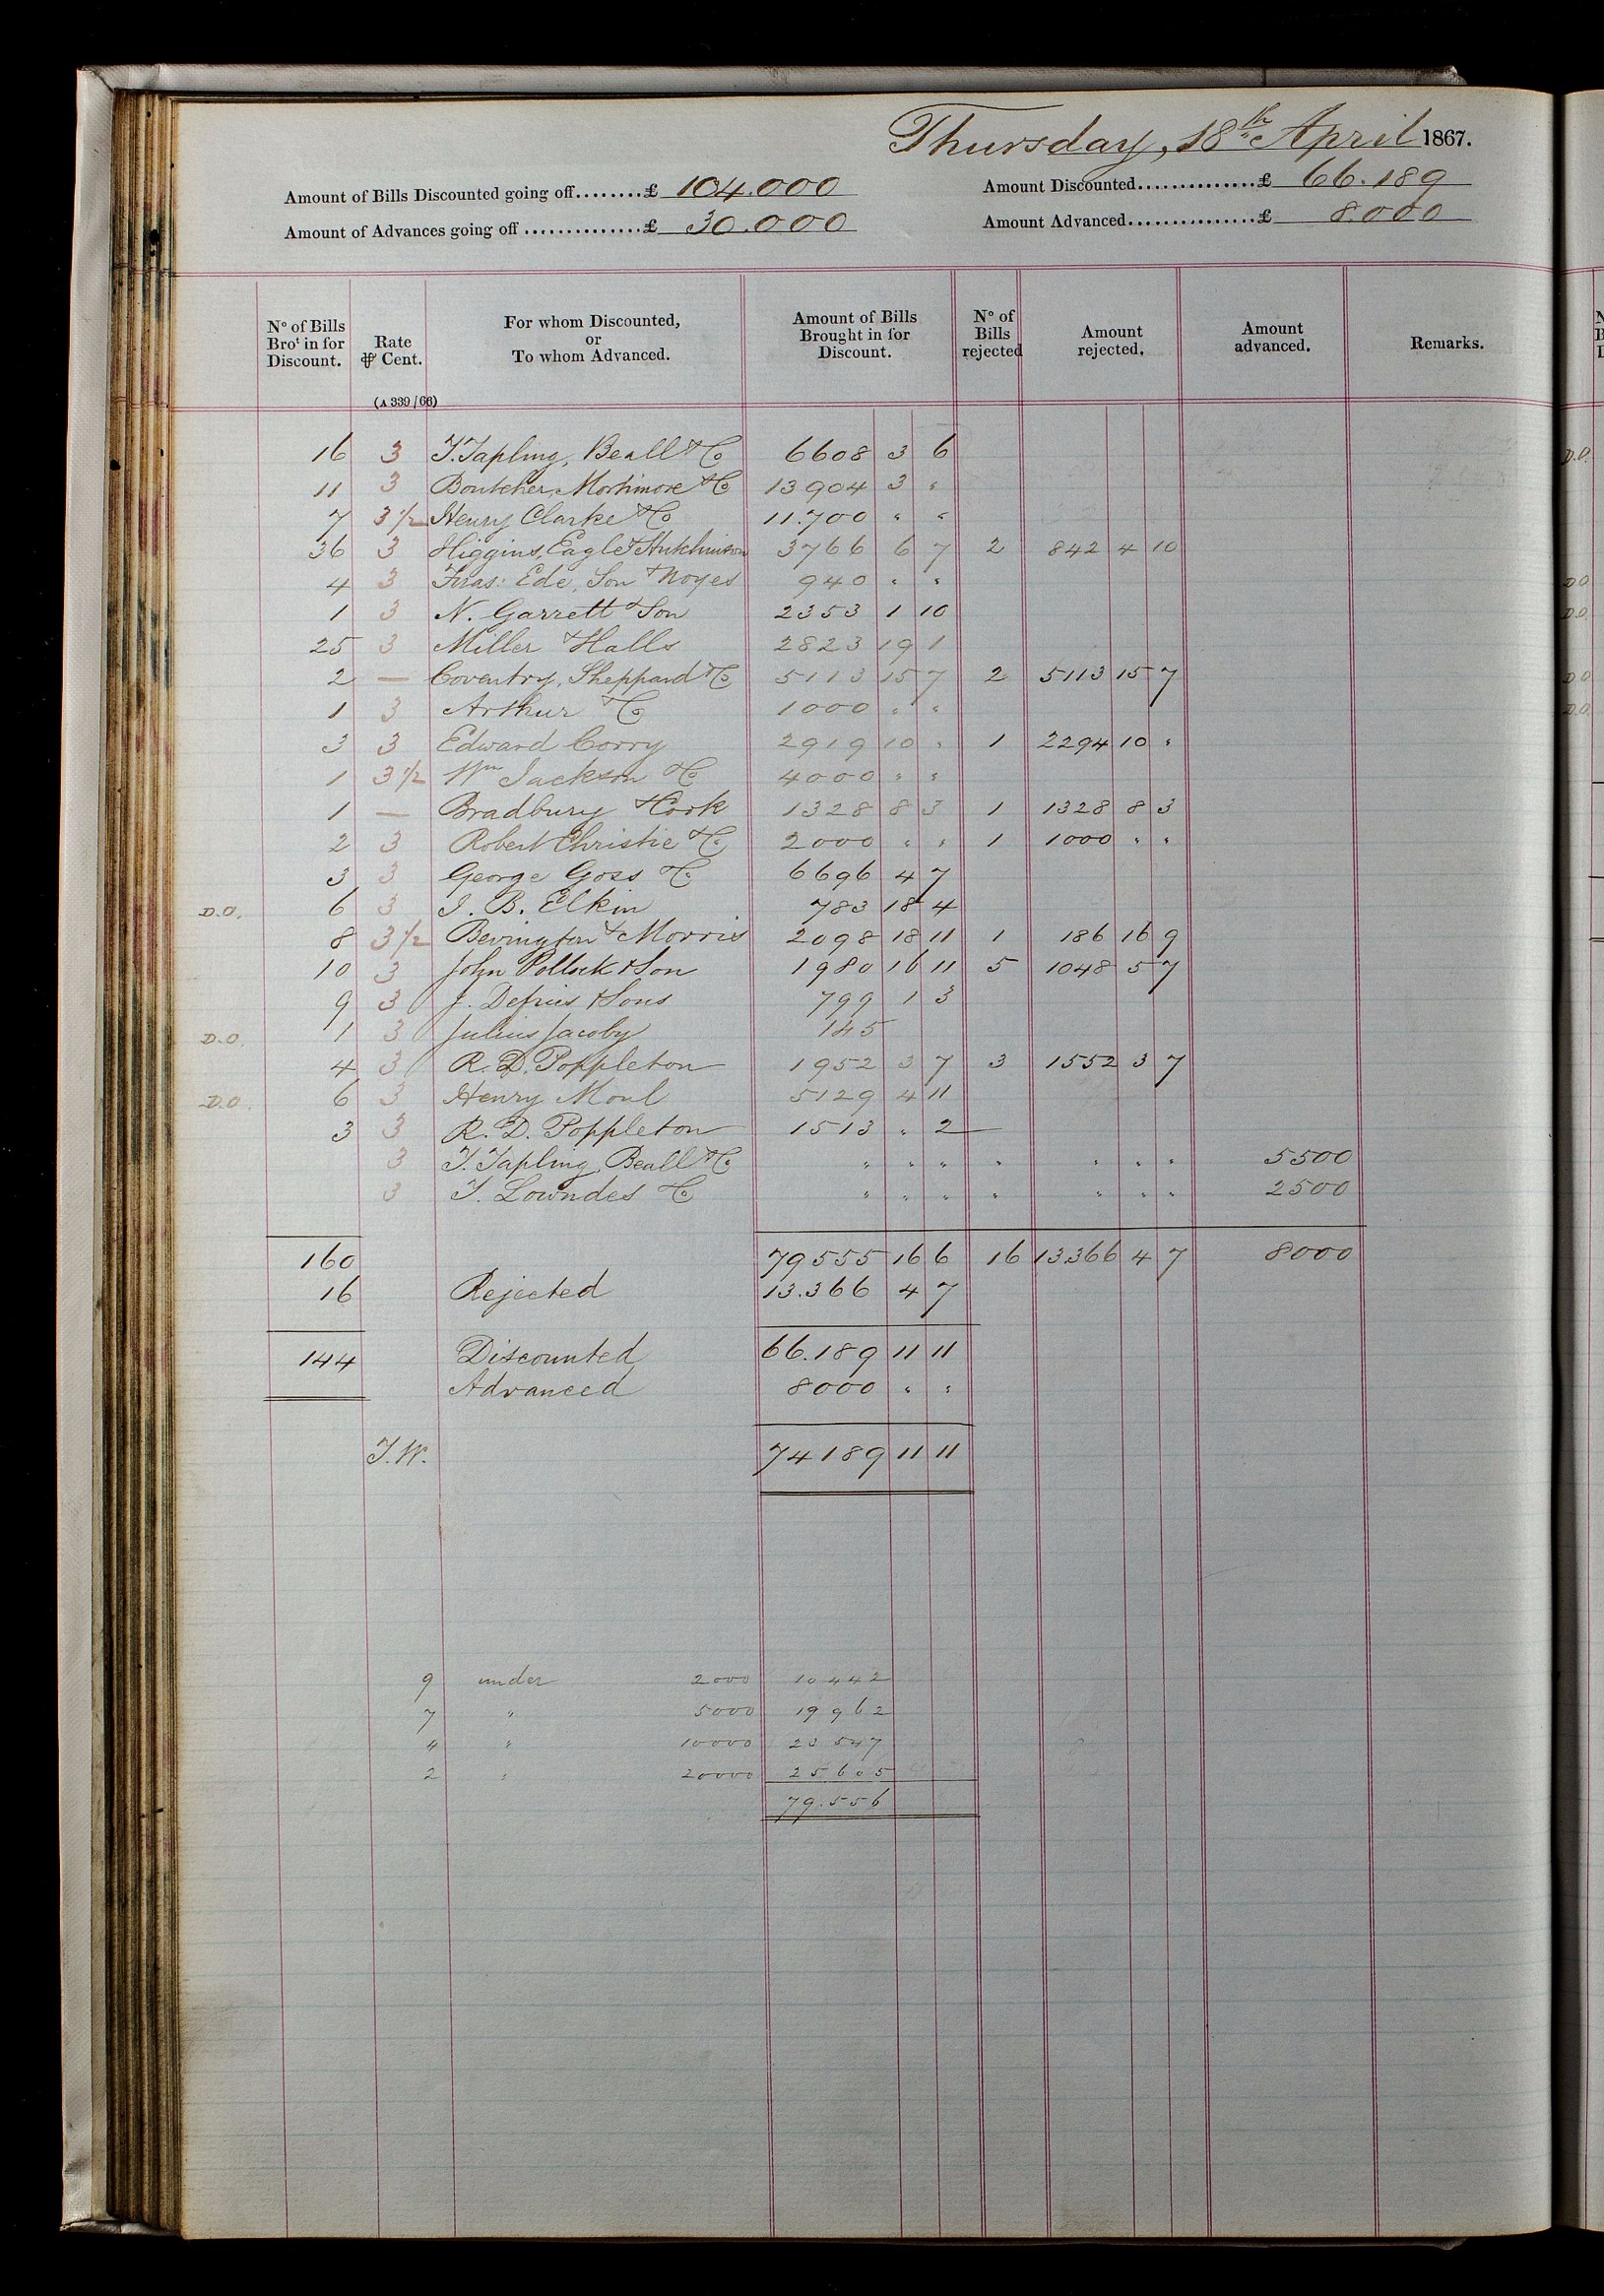 Thursday, 18th April 1867.
Amount of Bills Discounted going off........£ 104.000 Amount Discounted..............£ 66.189
Amount of Advances going off ..............£ 30.000 Amount Advanced...............£ 8.000
No of Bills Brot in for Discount. Rate ⅌ Cent. For whom Discounted, or To whom Advanced. Amount of Bills Brought in for Discount. No of Bills rejected Amount rejected. Amount advanced. Remarks.
(A 339/66)
16 3 T. Tapling, Beall & Co 6608 3 6
11 3 Boutcher, Mortimore & Co 13904 3 "
7 3 1/2 Henry Clarke & Co 11.700 " "
36 3 Higgins, Eagle & Hutchinson 3766 6 7 2 842 4 10
4 3 Fras: Ede, Son & Noyes 940 " "
1 3 N. Garrett & Son 2353 1 10
25 3 Miller & Halls 2823 19 1
2 — Coventry, Sheppard & Co 5113 15 7 2 5113 15 7
1 3 Arthur & Co 1000 " "
3 3 Edward Corry 2919 10 " 1 2294 10 "
1 3 1/2 Wm Jackson & Co 4000 " "
1 — Bradbury & Cook 1328 8 3 1 1328 8 3
2 3 Robert Christie & Co 2000 " " 1 1000 " "
3 3 George Goss & Co 6696 4 7
D.O. 6 3 I. B. Elkin 783 18 4
8 3 1/2 Bevington & Morris 2098 18 11 1 186 16 9
10 3 John Pollock & Son 1980 16 11 5 1048 5 7
9 3 J. Defries & Sons 799 1 3
D.O. 1 3 Julius Jacoby 145
4 3 R. D. Poppleton 1952 3 7 3 1552 3 7
D.O. 6 3 Henry Moul 5129 4 11
3 3 R. D. Poppleton 1513 " 2 —
3 T. Tapling, Beall & Co " " " " " " " 5500
3 T. Lowndes & Co " " " " " " " 2500
160 79555 16 6 16 13366 4 7 8000
16 Rejected 13.366 4 7
144 Discounted 66.189 11 11
Advanced 8000 " "
T.W. 74189 11 11
9 under 2000 10442
7 " 5000 19962
4 " 10000 23547
2 " 20000 25605
79.556
D.O.
D.O.
D.O.
D.O.
D.O.